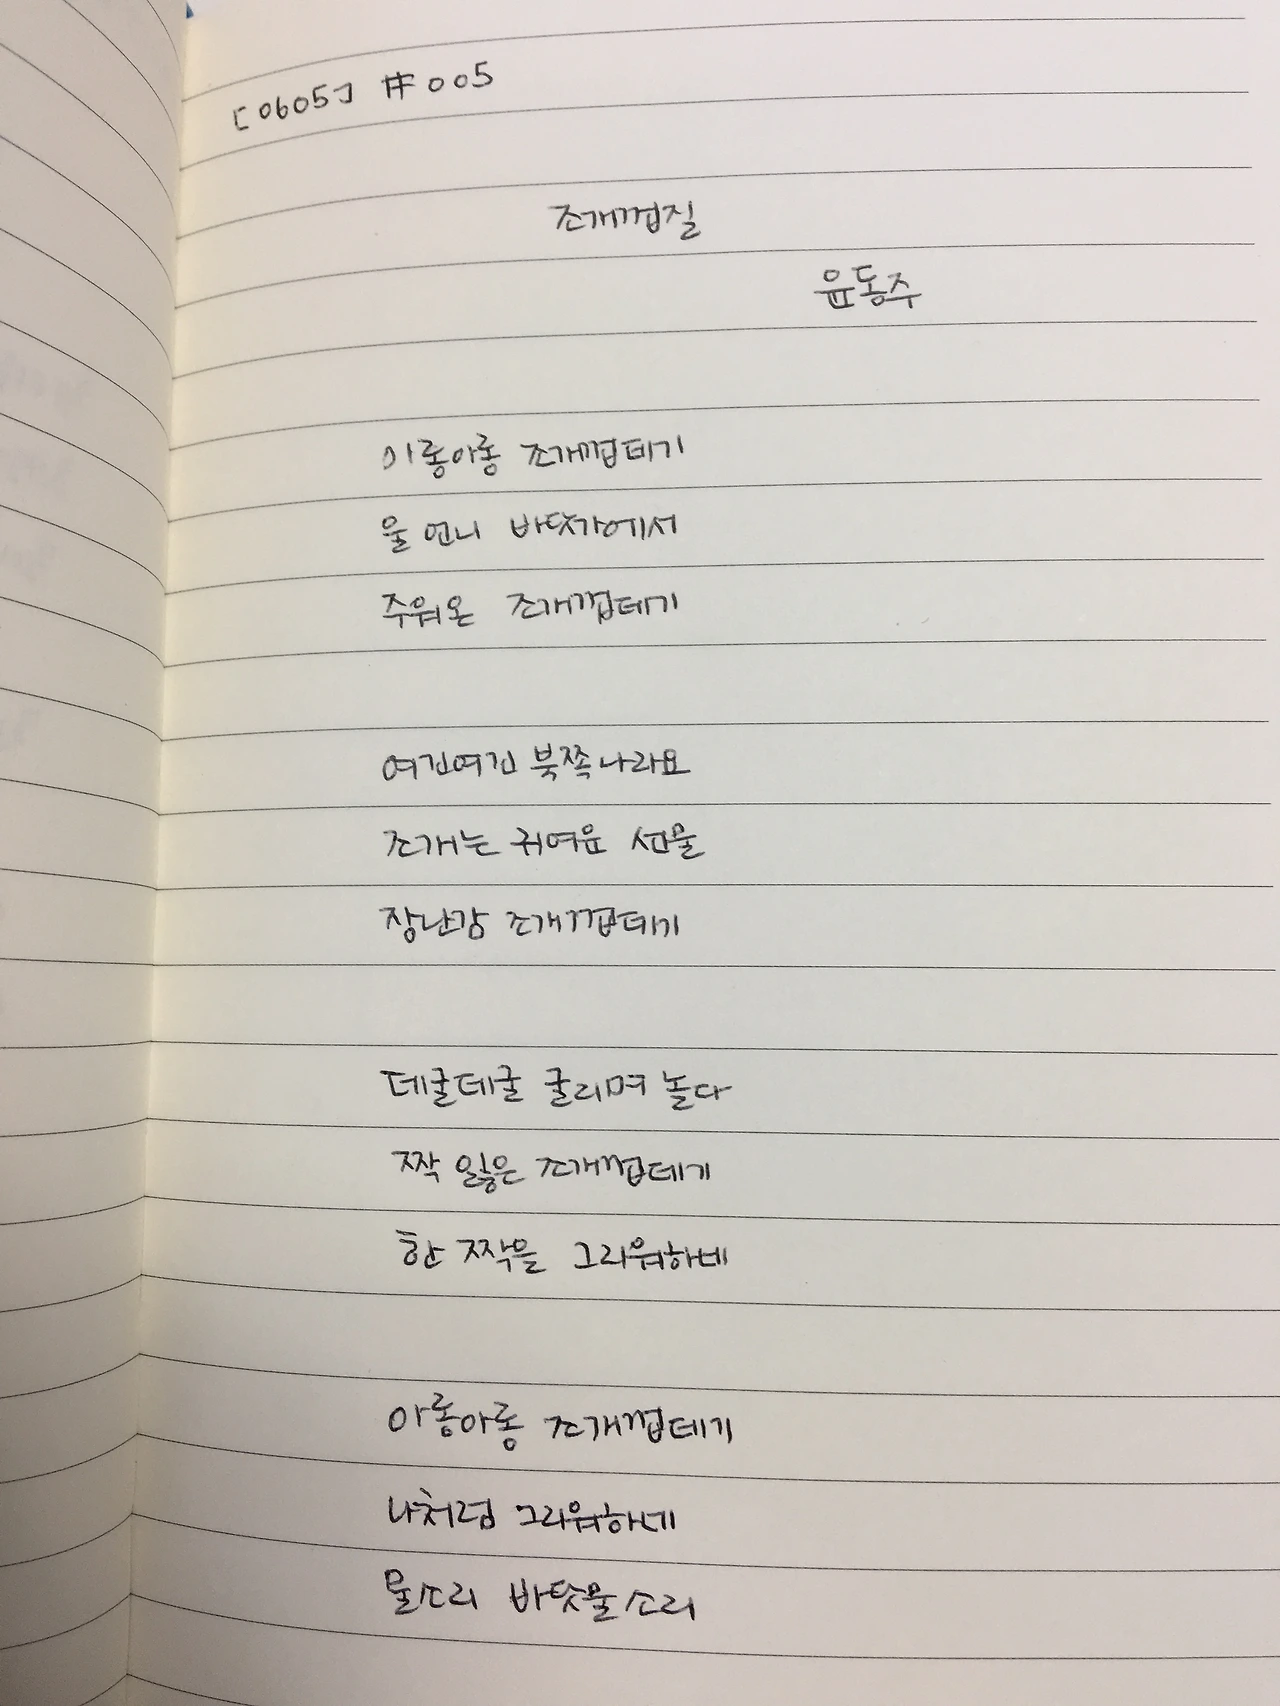 [0605] #005
조개껍질
윤동주
아롱아롱 조개껍데기
울 언니 바닷가에서
주워온 조개껍데기
여긴여긴 북쪽나라요
조개는 귀여운 선물
장난감 조개껍데기
데굴데굴 굴리며 놀다
짝 잃은 조개껍데기
한 짝을 그리워하네
아롱아롱 조개껍데기
나처럼 그리워하네
물소리 바닷물소리